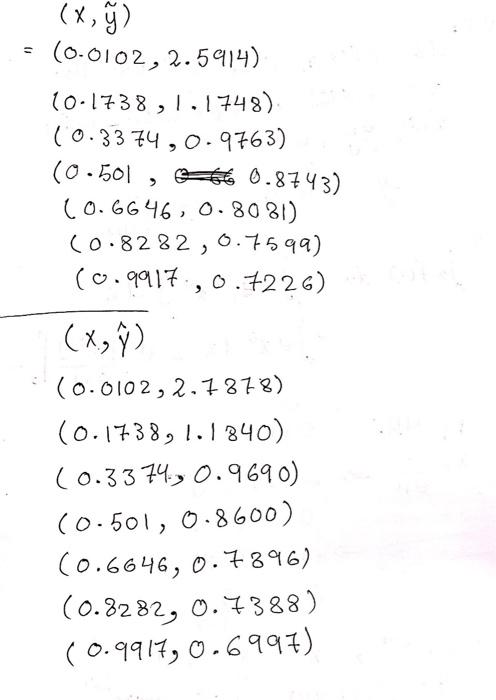 (x, ỹ)
= (0.0102, 2.5914)
(0.1738, 1.1748)
(0.3374, 0.9763)
(0.501, 0.8743)
(0.6646, 0.8081)
(0.8282, 0.7599)
(0.9917, 0.7226)
(x, ŷ)
(0.0102, 2.7878)
(0.1738, 1.1840)
(0.3374, 0.9690)
(0.501, 0.8600)
(0.6646, 0.7896)
(0.8282, 0.7388)
(0.9917, 0.6997)